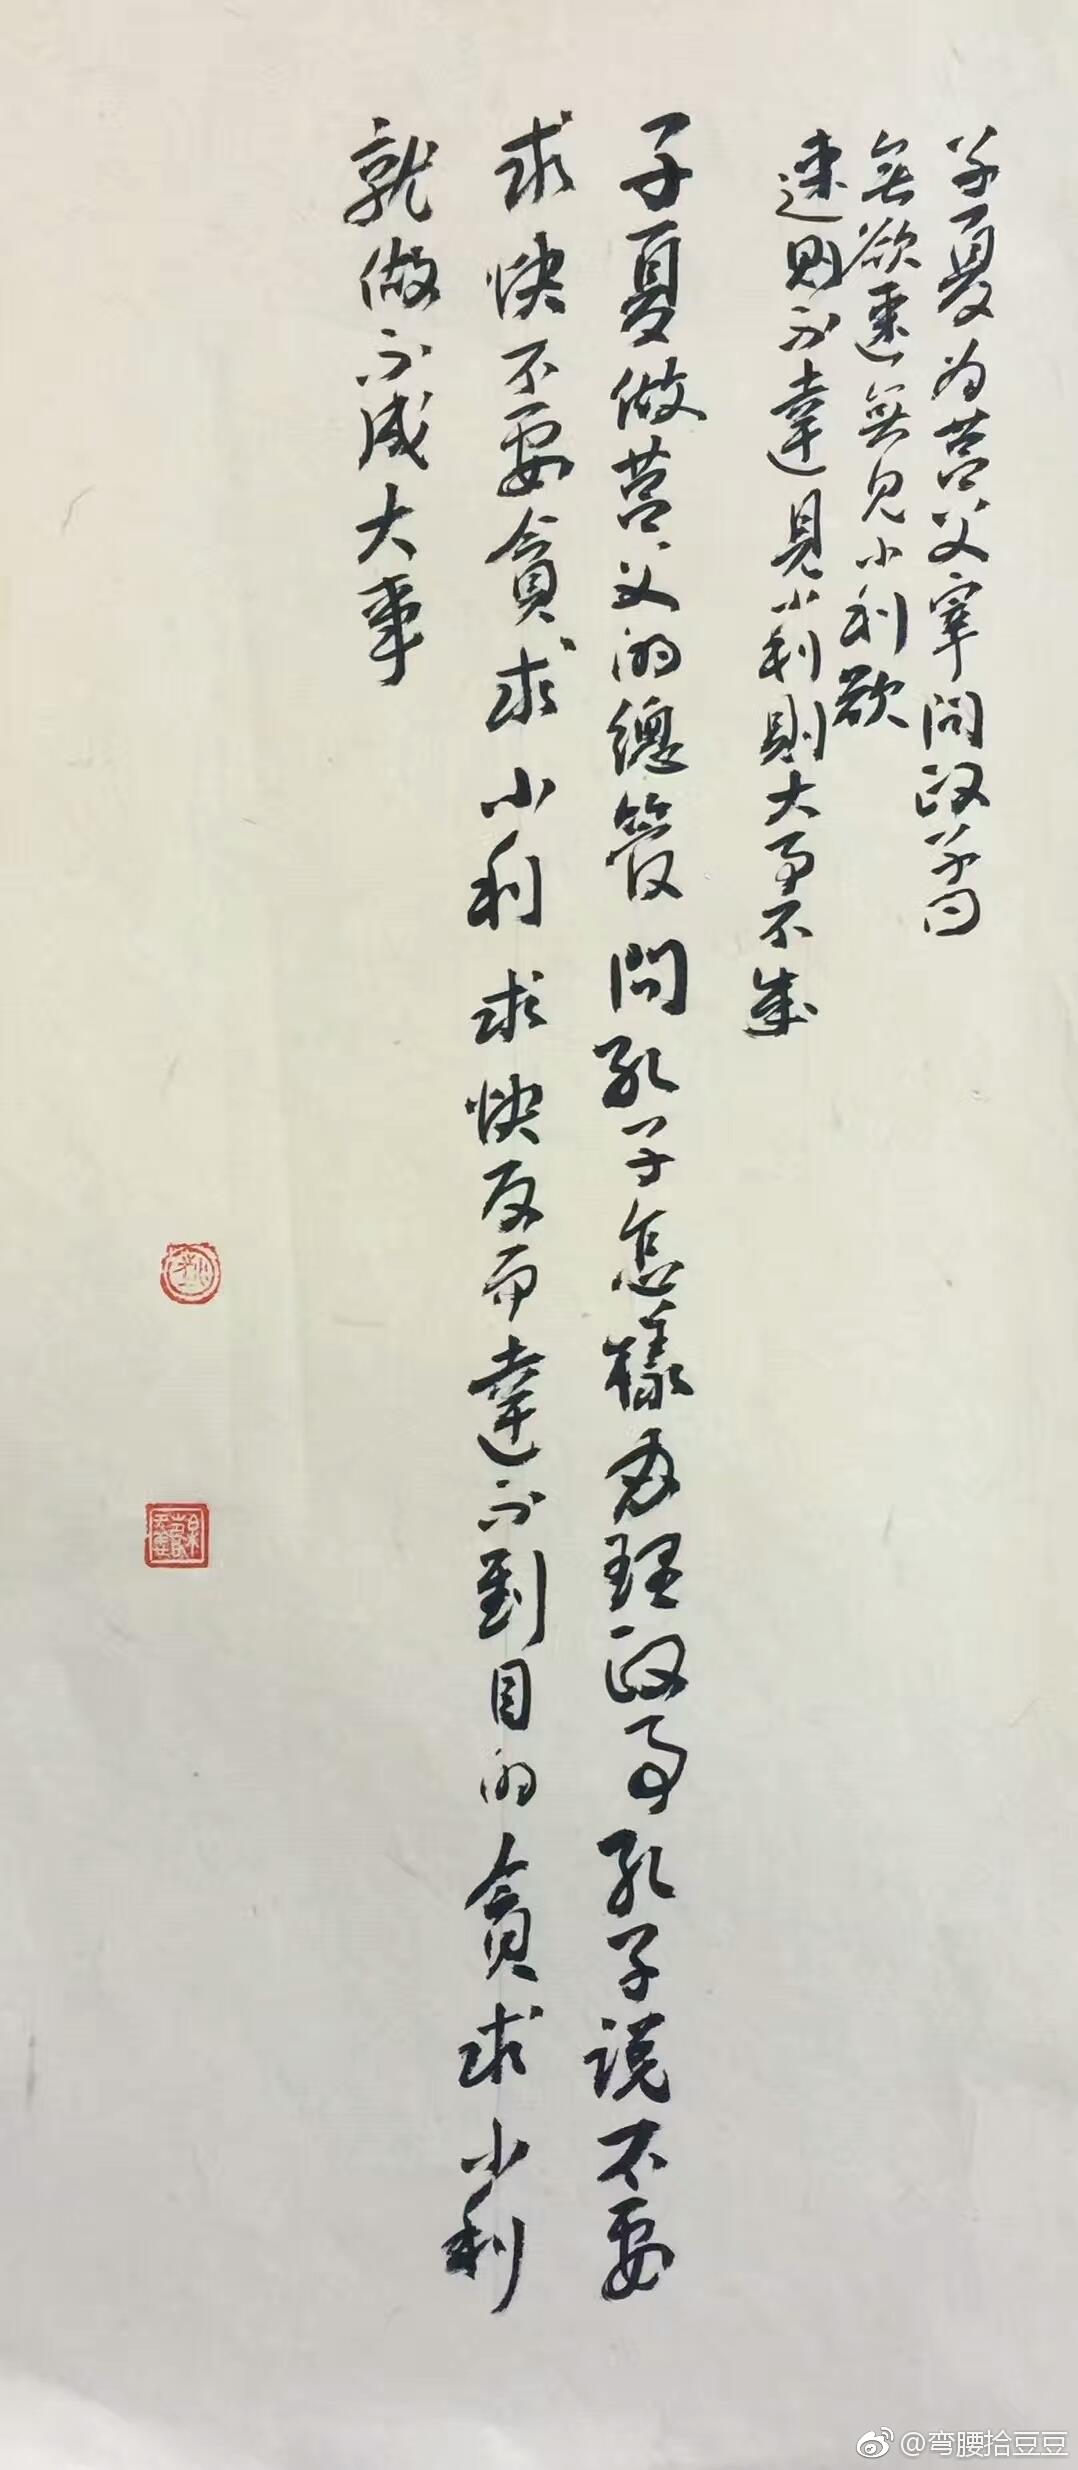 子夏为莒父宰问政子曰
無欲速無見小利欲
速則不達見小利則大事不成
子夏做莒父的總管問孔子怎樣办理政事孔子说不要
求快不要貪求小利求快反而達不到目的貪求小利
就做不成大事
@弯腰拾豆豆